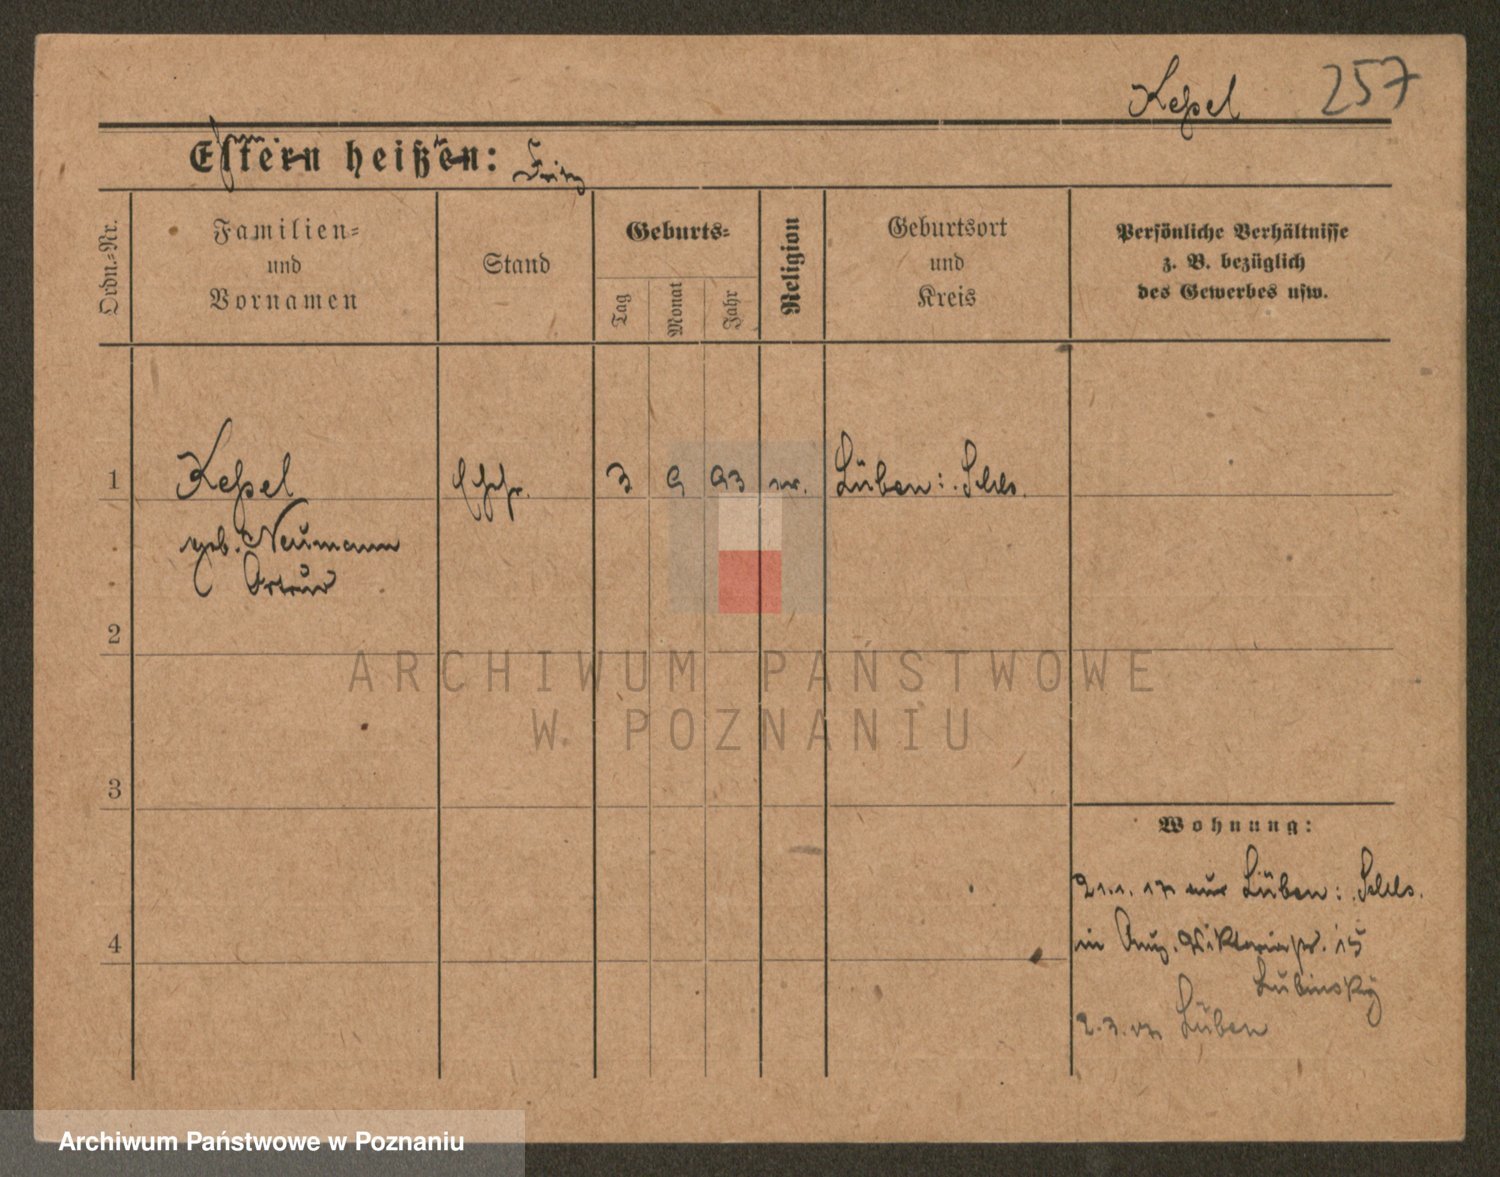 Keßel 257
Eltern heißen: Fritz
Ordn.-Nr.
Familien-
und
Vornamen
Stand
Geburts-
Tag
Monat
Jahr
Religion
Geburtsort
und
Kreis
Persönliche Verhältnisse
z. B. bezüglich
des Gewerbes usw.
1 Keßel 3 9 93 Lüben i. Schls.
geb. Neumann
2
3
4
Wohnung:
21.1.17 aus Lüben i. Schls.
in Aug. Viktoriastr. 15
Lubinsky
2.3.17 Lüben
ARCHIWUM PAŃSTWOWE
W POZNANIU
Archiwum Państwowe w Poznaniu